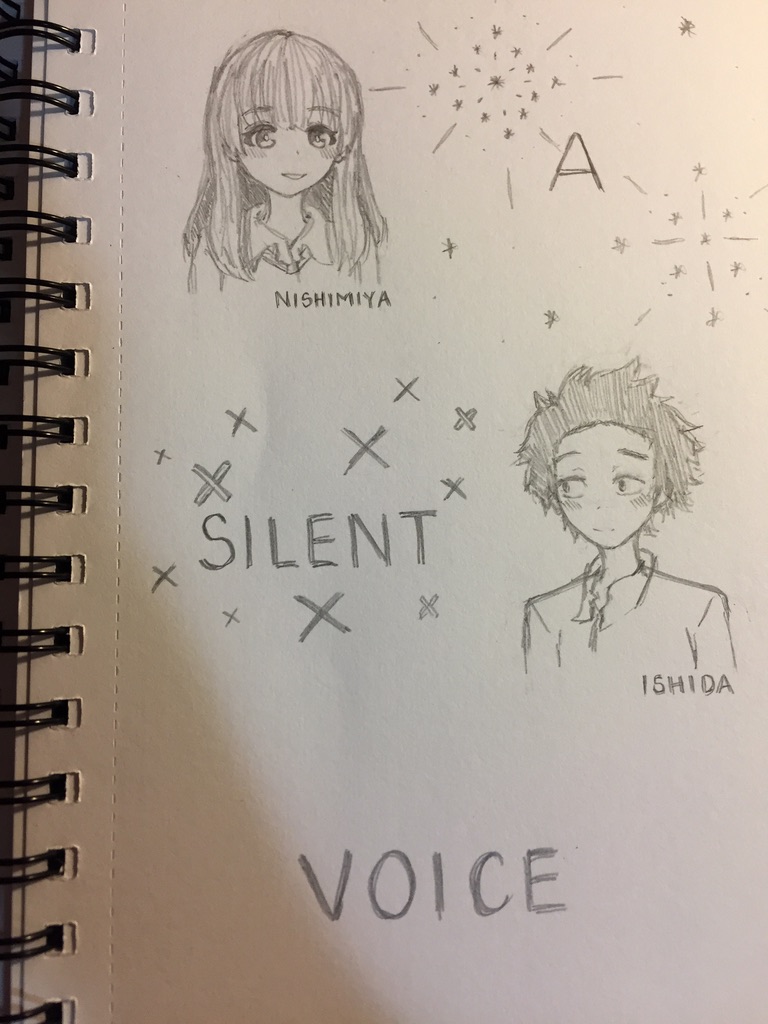 A
NISHIMIYA
SILENT
ISHIDA
VOICE